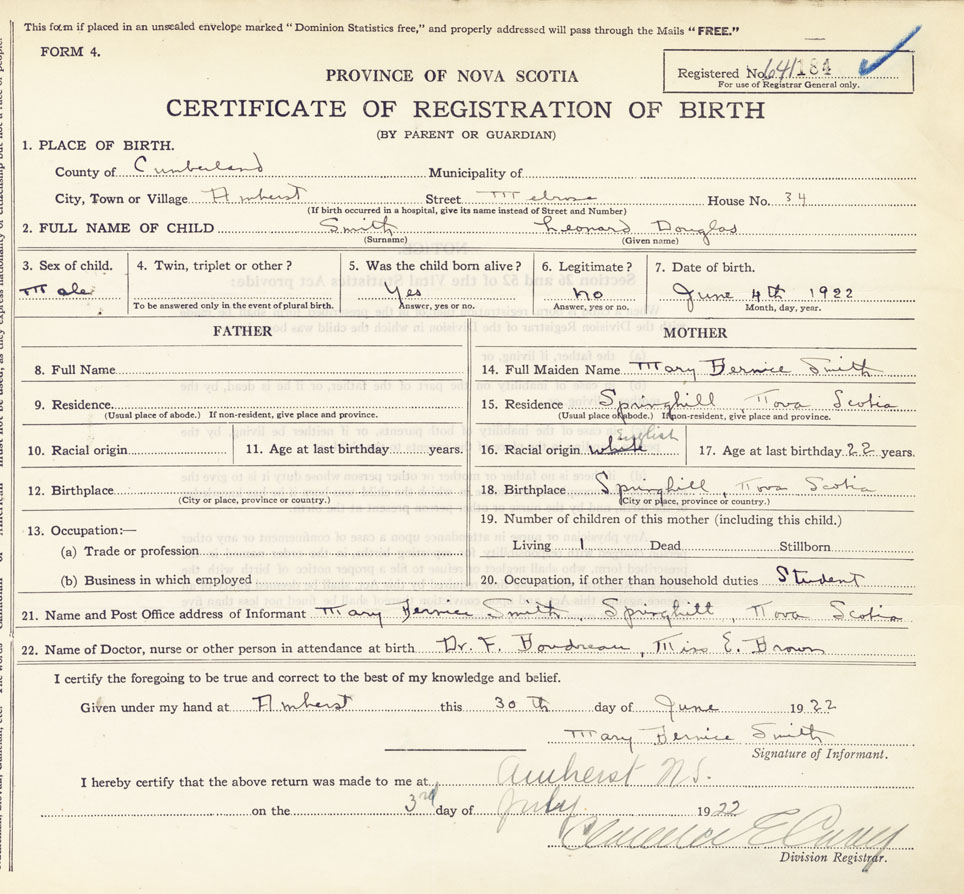 This form if placed in an unsealed envelope marked "Dominion Statistics free," and properly addressed will pass through the Mails "FREE."
FORM 4.
Registered No. 641184
For use of Registrar General only.
PROVINCE OF NOVA SCOTIA
CERTIFICATE OF REGISTRATION OF BIRTH
(BY PARENT OR GUARDIAN)
1. PLACE OF BIRTH.
County of Cumberland Municipality of
City, Town or Village Amherst Street Melrose House No. 34
(If birth occurred in a hospital, give its name instead of Street and Number)
2. FULL NAME OF CHILD Smith Leonard Douglas
(Surname) (Given name)
3. Sex of child. 4. Twin, triplet or other? 5. Was the child born alive? 6. Legitimate? 7. Date of birth.
Male Yes no June 4th 1922
To be answered only in the event of plural birth. Answer, yes or no. Answer, yes or no. Month, day, year.
FATHER MOTHER
8. Full Name 14. Full Maiden Name Mary Bernice Smith
9. Residence 15. Residence Springhill, Nova Scotia
(Usual place of abode.) If non-resident, give place and province. (Usual place of abode.) If non-resident, give place and province.
English
10. Racial origin 11. Age at last birthday years. 16. Racial origin white 17. Age at last birthday 22 years.
12. Birthplace 18. Birthplace Springhill, Nova Scotia
(City or place, province or country.) (City or place, province or country.)
13. Occupation:— 19. Number of children of this mother (including this child.)
(a) Trade or profession Living 1 Dead Stillborn
(b) Business in which employed 20. Occupation, if other than household duties Student
21. Name and Post Office address of Informant Mary Bernice Smith, Springhill, Nova Scotia
22. Name of Doctor, nurse or other person in attendance at birth Dr. F. Boudreau, Miss E. Brown
I certify the foregoing to be true and correct to the best of my knowledge and belief.
Given under my hand at Amherst this 30th day of June 1922
Mary Bernice Smith
Signature of Informant.
I hereby certify that the above return was made to me at Amherst N.S.
on the 3rd day of July 1922
Clarence E
Division Registrar.